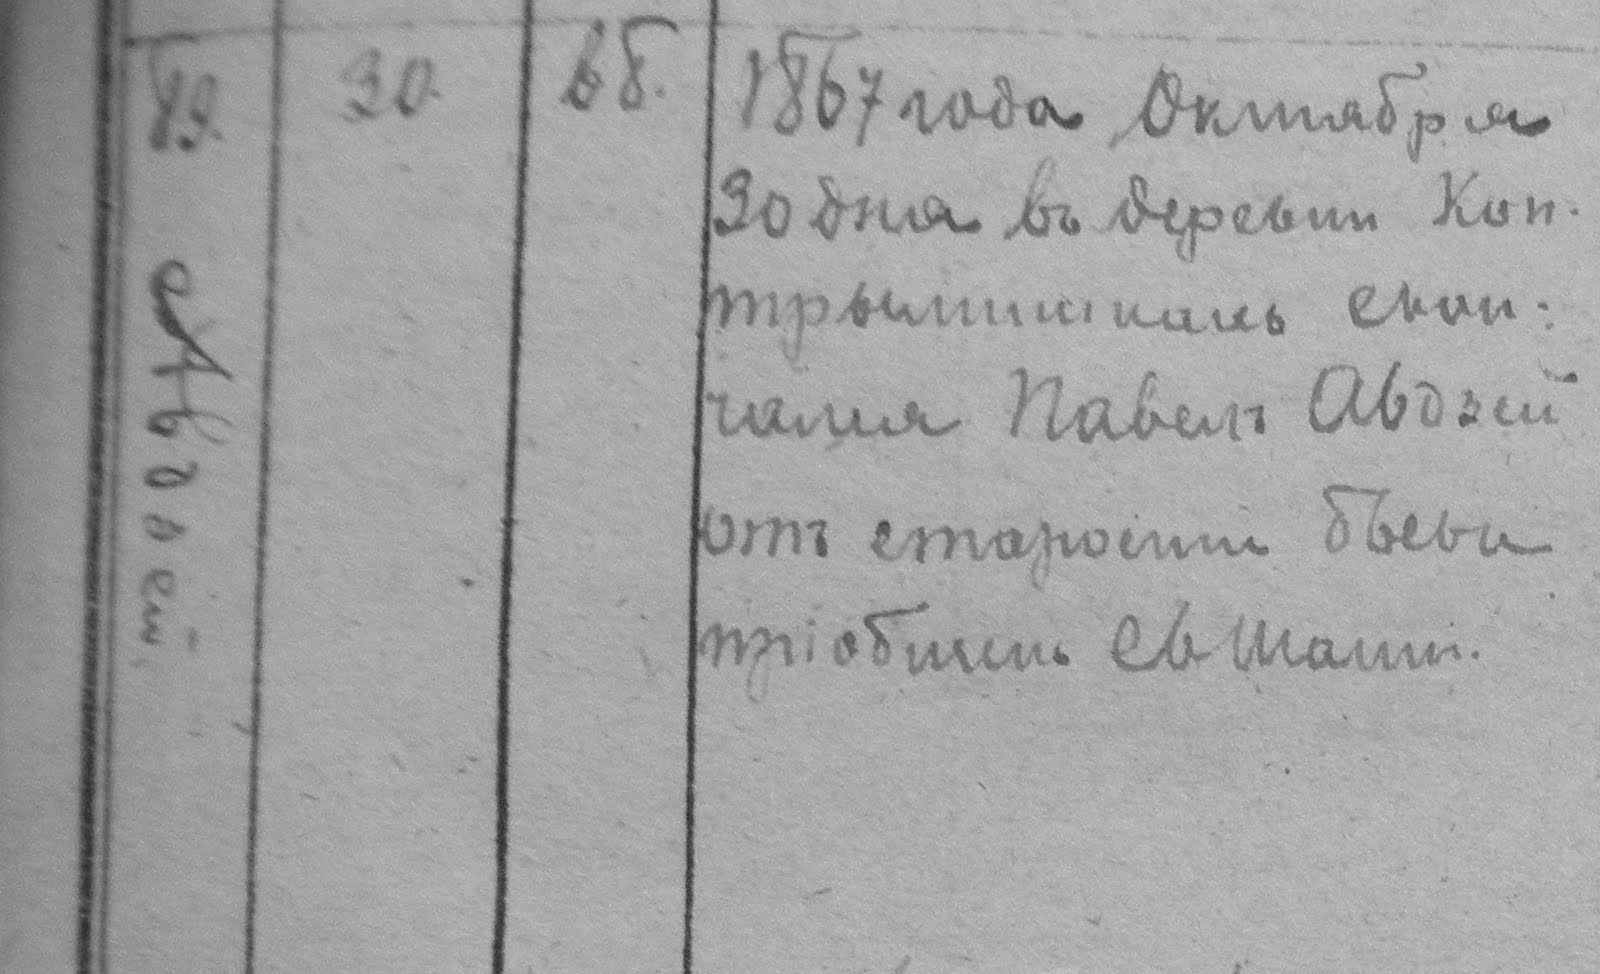 30.
1867 года Октября
30 дня въ деревни Кон-
скон-
чался Павелъ Авдзей
отъ старости бывъ
пріобщенъ Св Таинъ.
Авдзей